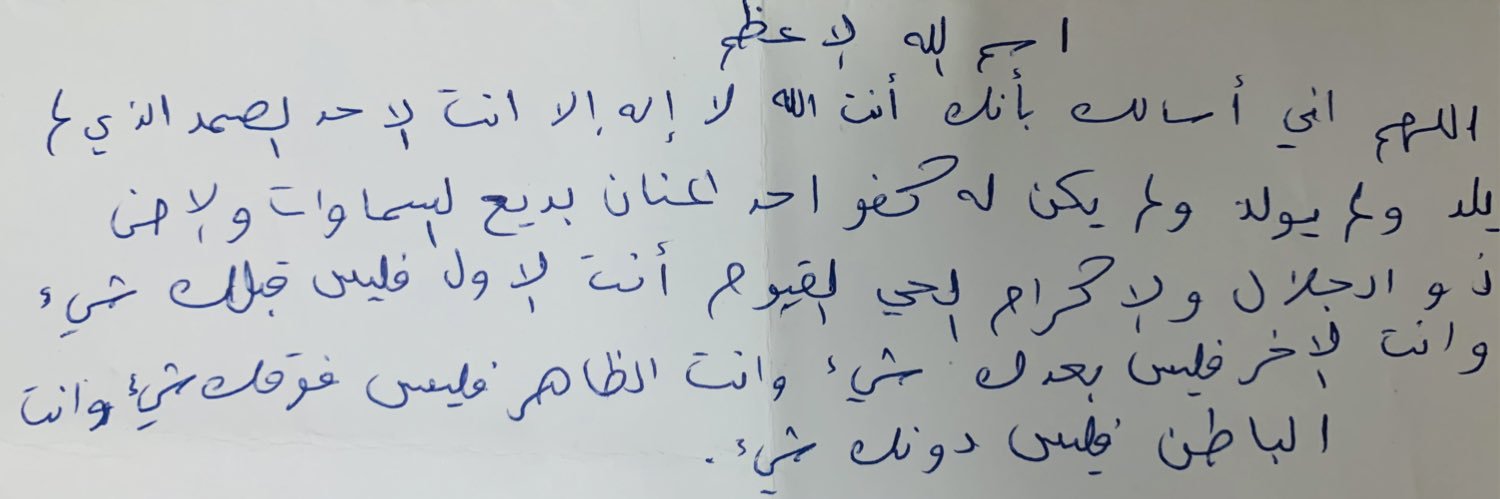 اسم الله الاعظم
اللهم اني أسالك بأنك أنت الله لا إله إلا انت الاحد الصمد الذي لم
يلد ولم يولد ولم يكن له كفو احد المنان بديع السماوات والارض
ذو الجلال والاكرام الحي القيوم أنت الاول فليس قبلك شيء
وانت الاخر فليس بعدك شيء وانت الظاهر فليس فوقك شيء وانت
الباطن فليس دونك شيء.